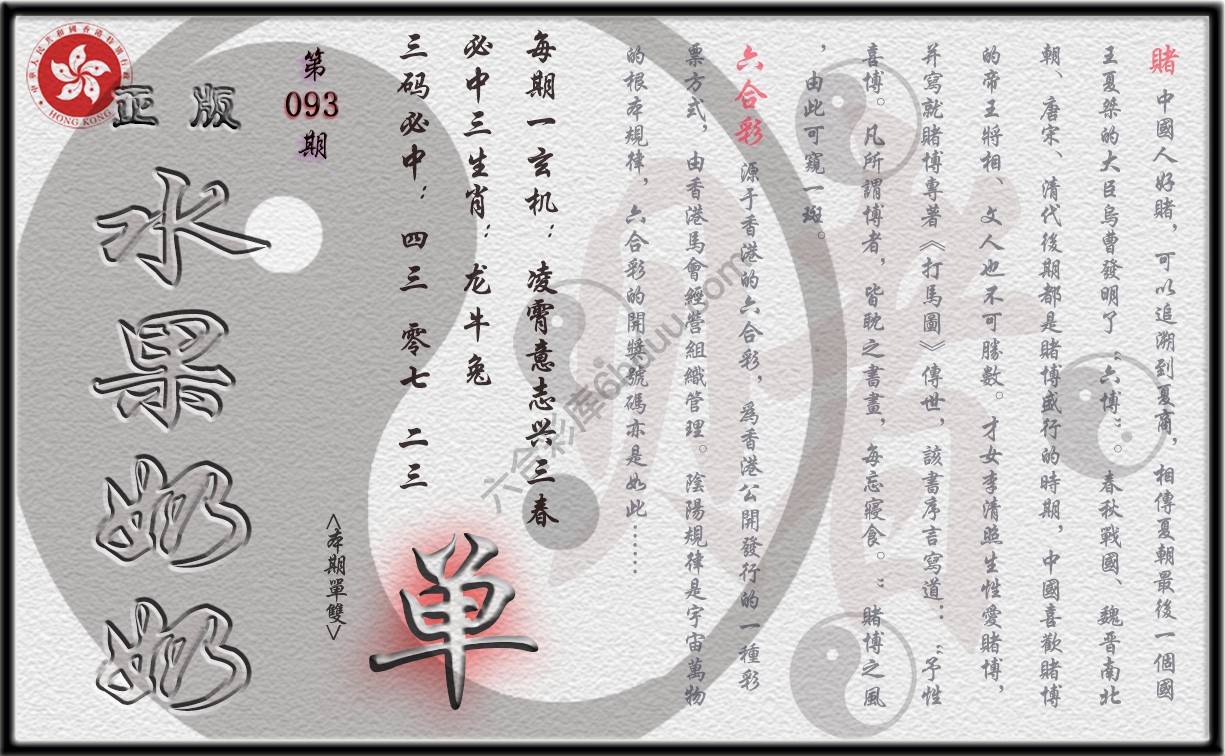 賭 中國人好賭，可以追溯到夏商，相傳夏朝最後一個國
王夏桀的大臣烏曹發明了“六博”。春秋戰國、魏晋南北
朝、唐宋、清代後期都是賭博盛行的時期，中國喜歡賭博
的帝王將相、文人也不可勝數。才女李清照生性愛賭博，
并寫就賭博專著《打馬圖》傳世，該書序言寫道：“予性
喜博。凡所謂博者，皆耽之書畫，每忘寢食。”賭博之風
，由此可窺一斑。
六合彩 源于香港的六合彩，爲香港公開發行的一種彩
票方式，由香港馬會經營組織管理。陰陽規律是宇宙萬物
的根本規律，六合彩的開獎號碼亦是如此……
每期一玄机：凌霄意志兴三春
必中三生肖：龙牛兔
三码必中：四三 零七 二三
<本期單雙>
单
第
093
期
正版
水果奶奶
中華人民共和國香港特別行政區
HONG KONG
六合彩库6hduu.com